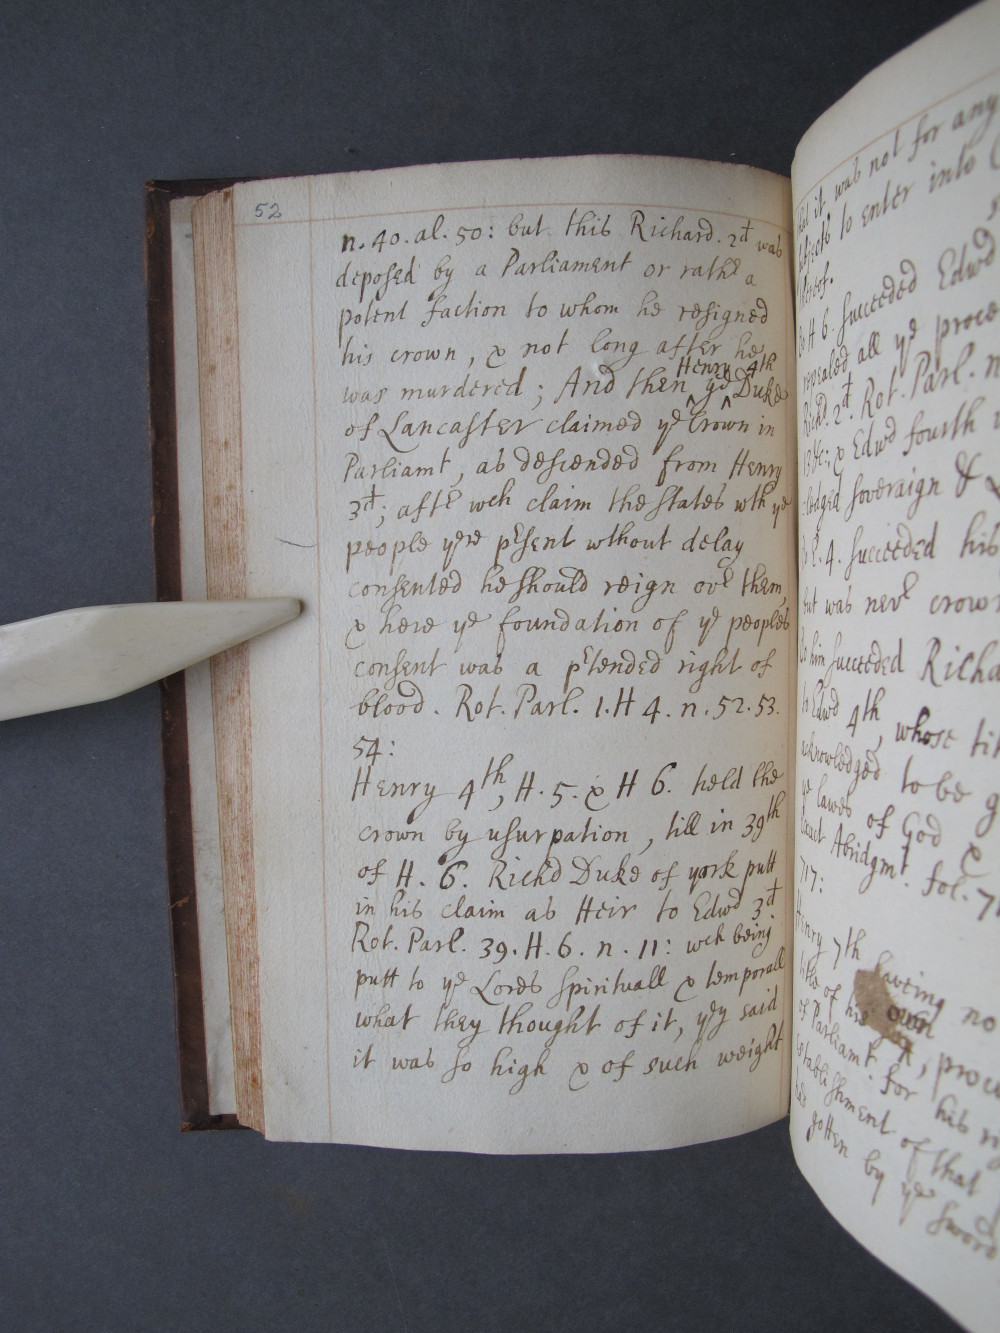 52
n. 40. al. 50: but this Richard. 2d was
deposed by a Parliament or rathr a
potent faction to whom he resigned
his crown, & not long after he
Henry 4th
was murdered; And then ^ ye ^ Duke
of Lancaster claimed ye Crown in
Parliamt, as descended from Henry
3d; aftr wch claim the states wth ye
people yere prsent wthout delay
consented he should reign ovr them,
& here ye foundation of ye peoples
consent was a prtended right of
blood. Rot. Parl. 1. H 4. n. 52. 53.
54:
Henry 4th, H. 5. & H 6. held the
crown by usurpation, till in 39th
of H. 6. Richd Duke of york putt
in his claim as Heir to Edwd 3d
Rot. Parl. 39. H. 6. n. 11: wch being
putt to ye Lords spirituall & temporall
what they thought of it, yey said
it was so high & of such weight
that it was not for any
subjects to enter into
thereof.
To H 6. succeeded Edwd
repealed all ye proce
Richd. 2d. Rot. Parl. n
&c: & Edwd fourth
-ledged soveraign &
To E. 4. succeeded his
but was nevr crown
To him succeeded Richa
to Edwd 4th, whose tit
acknowledged to be g
ye lawes of God &
Exact Abridgmt. fol. 7
717:
Henry 7th having no
title of his own, procu
of Parliamt for his
establishment of that
had gotten by ye sword